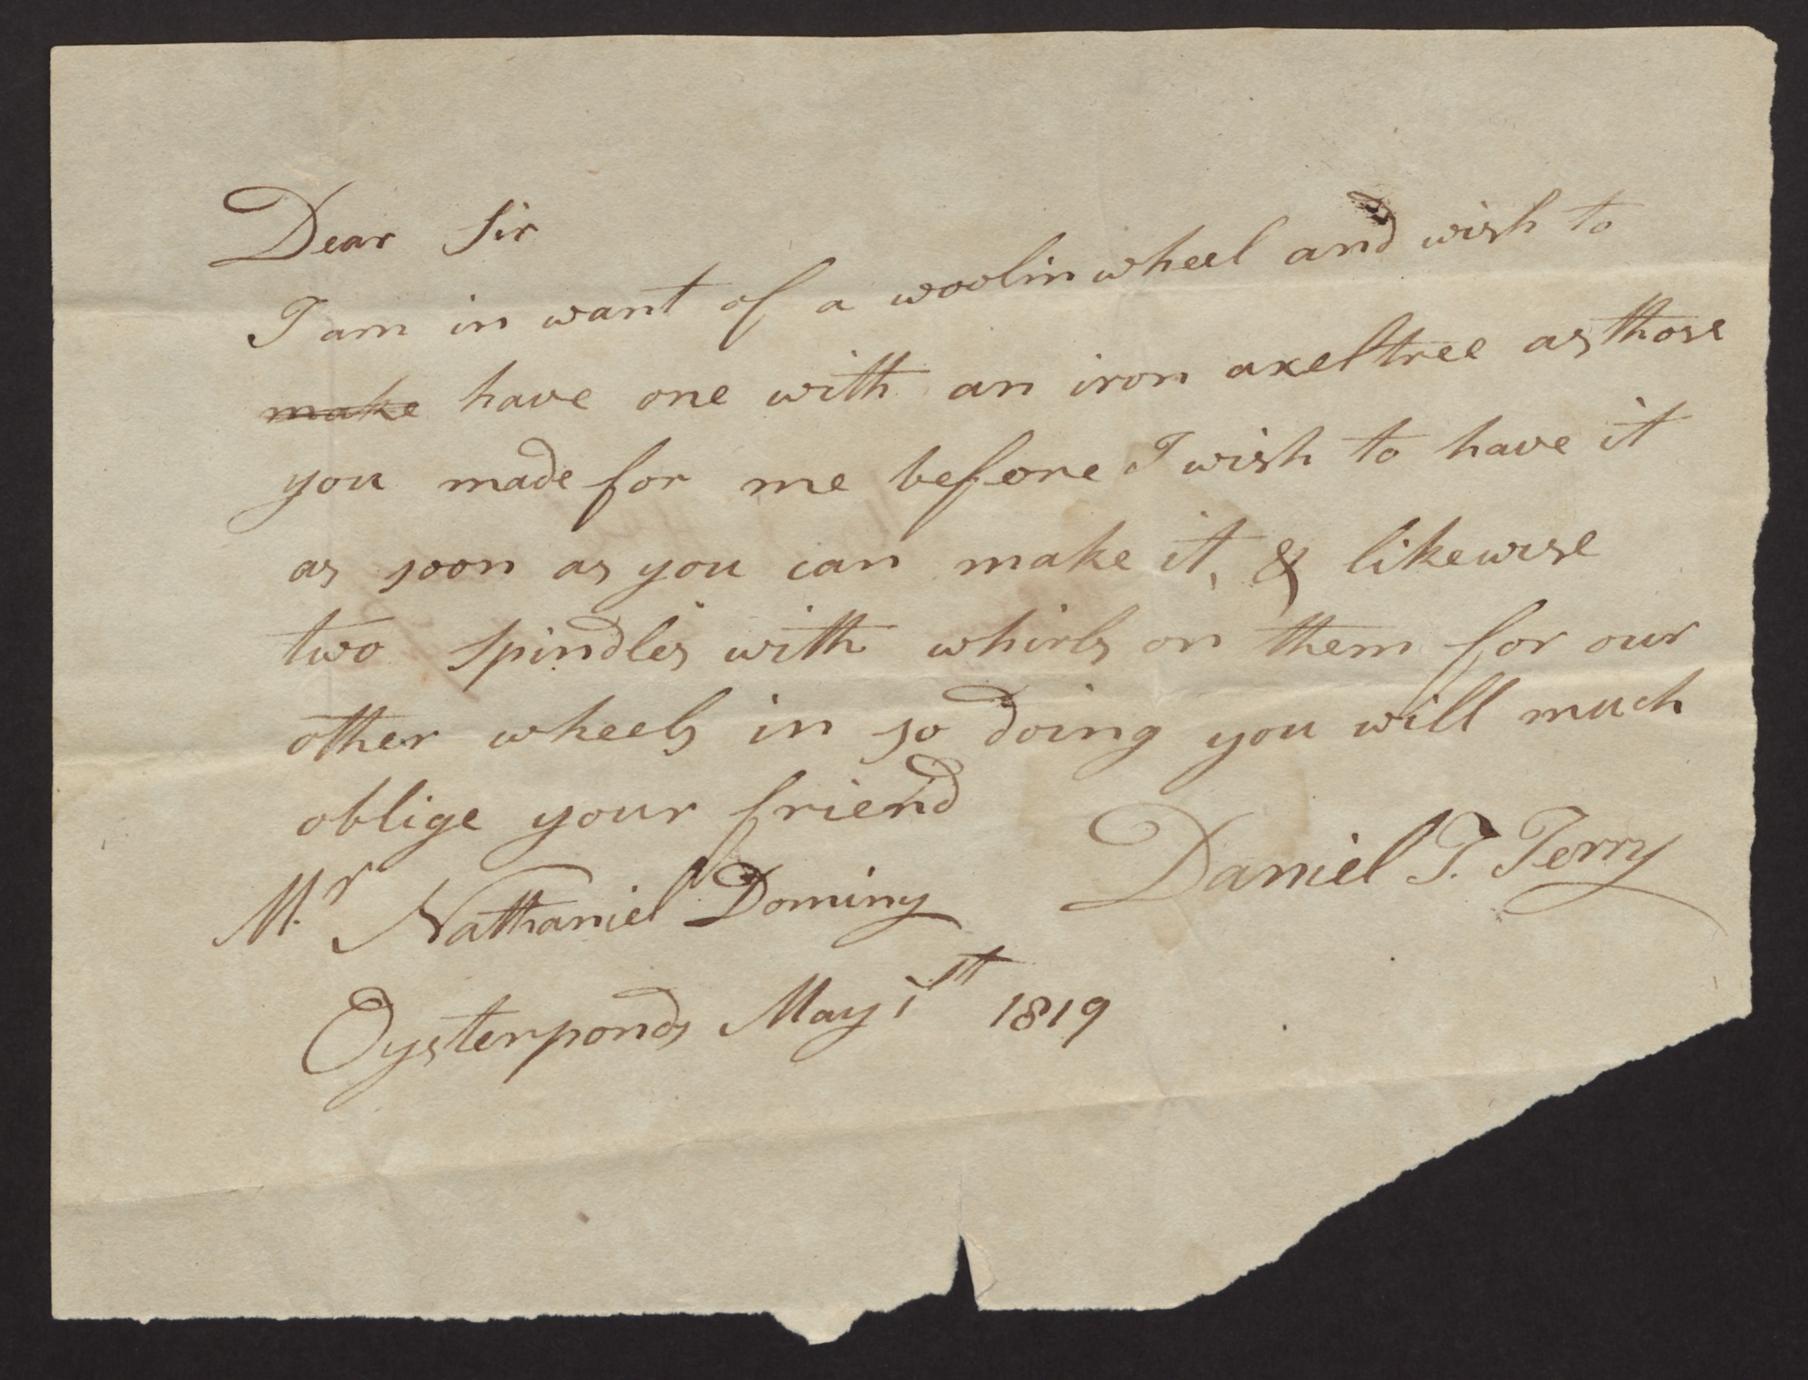 Dear Sir
I am in want of a woolin wheel and wish to
make have one with an iron axeltree as those
you made for me before I wish to have it
as soon as you can make it, & likewise
two spindles with whirls on them for our
other wheels in so doing you will much
oblige your friend
Daniel T. Terry
M.r Nathaniel Dominy
Oysterponds May 1st 1819